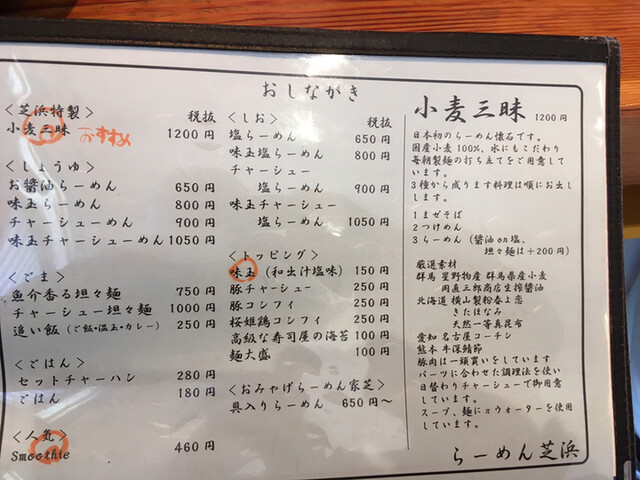 おしながき
<芝浜特製> 税抜
小麦三昧 おすすめ 1200円
<しょうゆ>
お醤油らーめん 650円
味玉らーめん 800円
チャーシューめん 900円
味玉チャーシューめん 1050円
<ごま>
魚介香る坦々麺 750円
チャーシュー坦々麺 1000円
追い飯(ご飯・温玉・カレー) 250円
<ごはん>
セットチャーハン 280円
ごはん 180円
<人気>
Smoothie 460円
<しお> 税抜
塩らーめん 650円
味玉塩らーめん 800円
チャーシュー
塩らーめん 900円
味玉チャーシュー
塩らーめん 1050円
<トッピング>
味玉(和出汁塩味) 150円
豚チャーシュー 250円
豚コンフィ 250円
桜姫鶏コンフィ 250円
高級な寿司屋の海苔 100円
麺大盛 100円
<おみやげらーめん家芝>
具入りらーめん 650円~
小麦三昧 1200円
日本初のらーめん懐石です。
国産小麦100%、水にもこだわり
毎朝製麺の打ち立てをご用意して
います。
3種から成ります料理は順にお出し
します。
1まぜそば
2つけめん
3らーめん(醤油or塩、
坦々麺は+200円)
厳選素材
群馬 星野物産 群馬県産小麦
岡直三郎商店生搾醤油
北海道 横山製粉春よ恋
きたほなみ
天然一等真昆布
愛知 名古屋コーチン
熊本 牛深鯖節
豚肉は一頭買いをしています
パーツに合わせた調理法を使い
日替わりチャーシューで御用意
しています。
スープ、麺にπウォーターを使用
しています。
らーめん芝浜